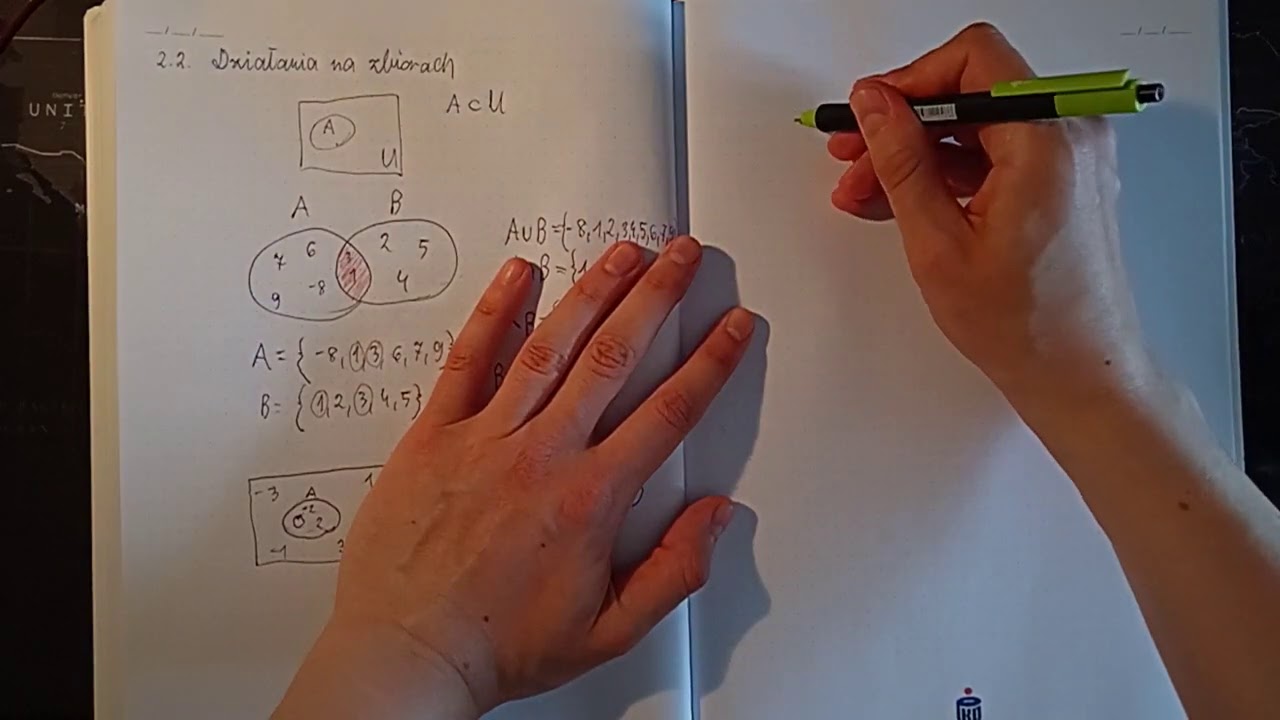 2.2. Działania na zbiorach
A ⊂ U
A
U
A B
7 6 3 2 5
9 -8 1 4
A∪B = {-8, 1, 2, 3, 4, 5, 6, 7, 9
B = {1
A = { -8, 1, 3, 6, 7, 9}
B = { 1, 2, 3, 4, 5}
-3 A
0 -2 2
-1
UNIT